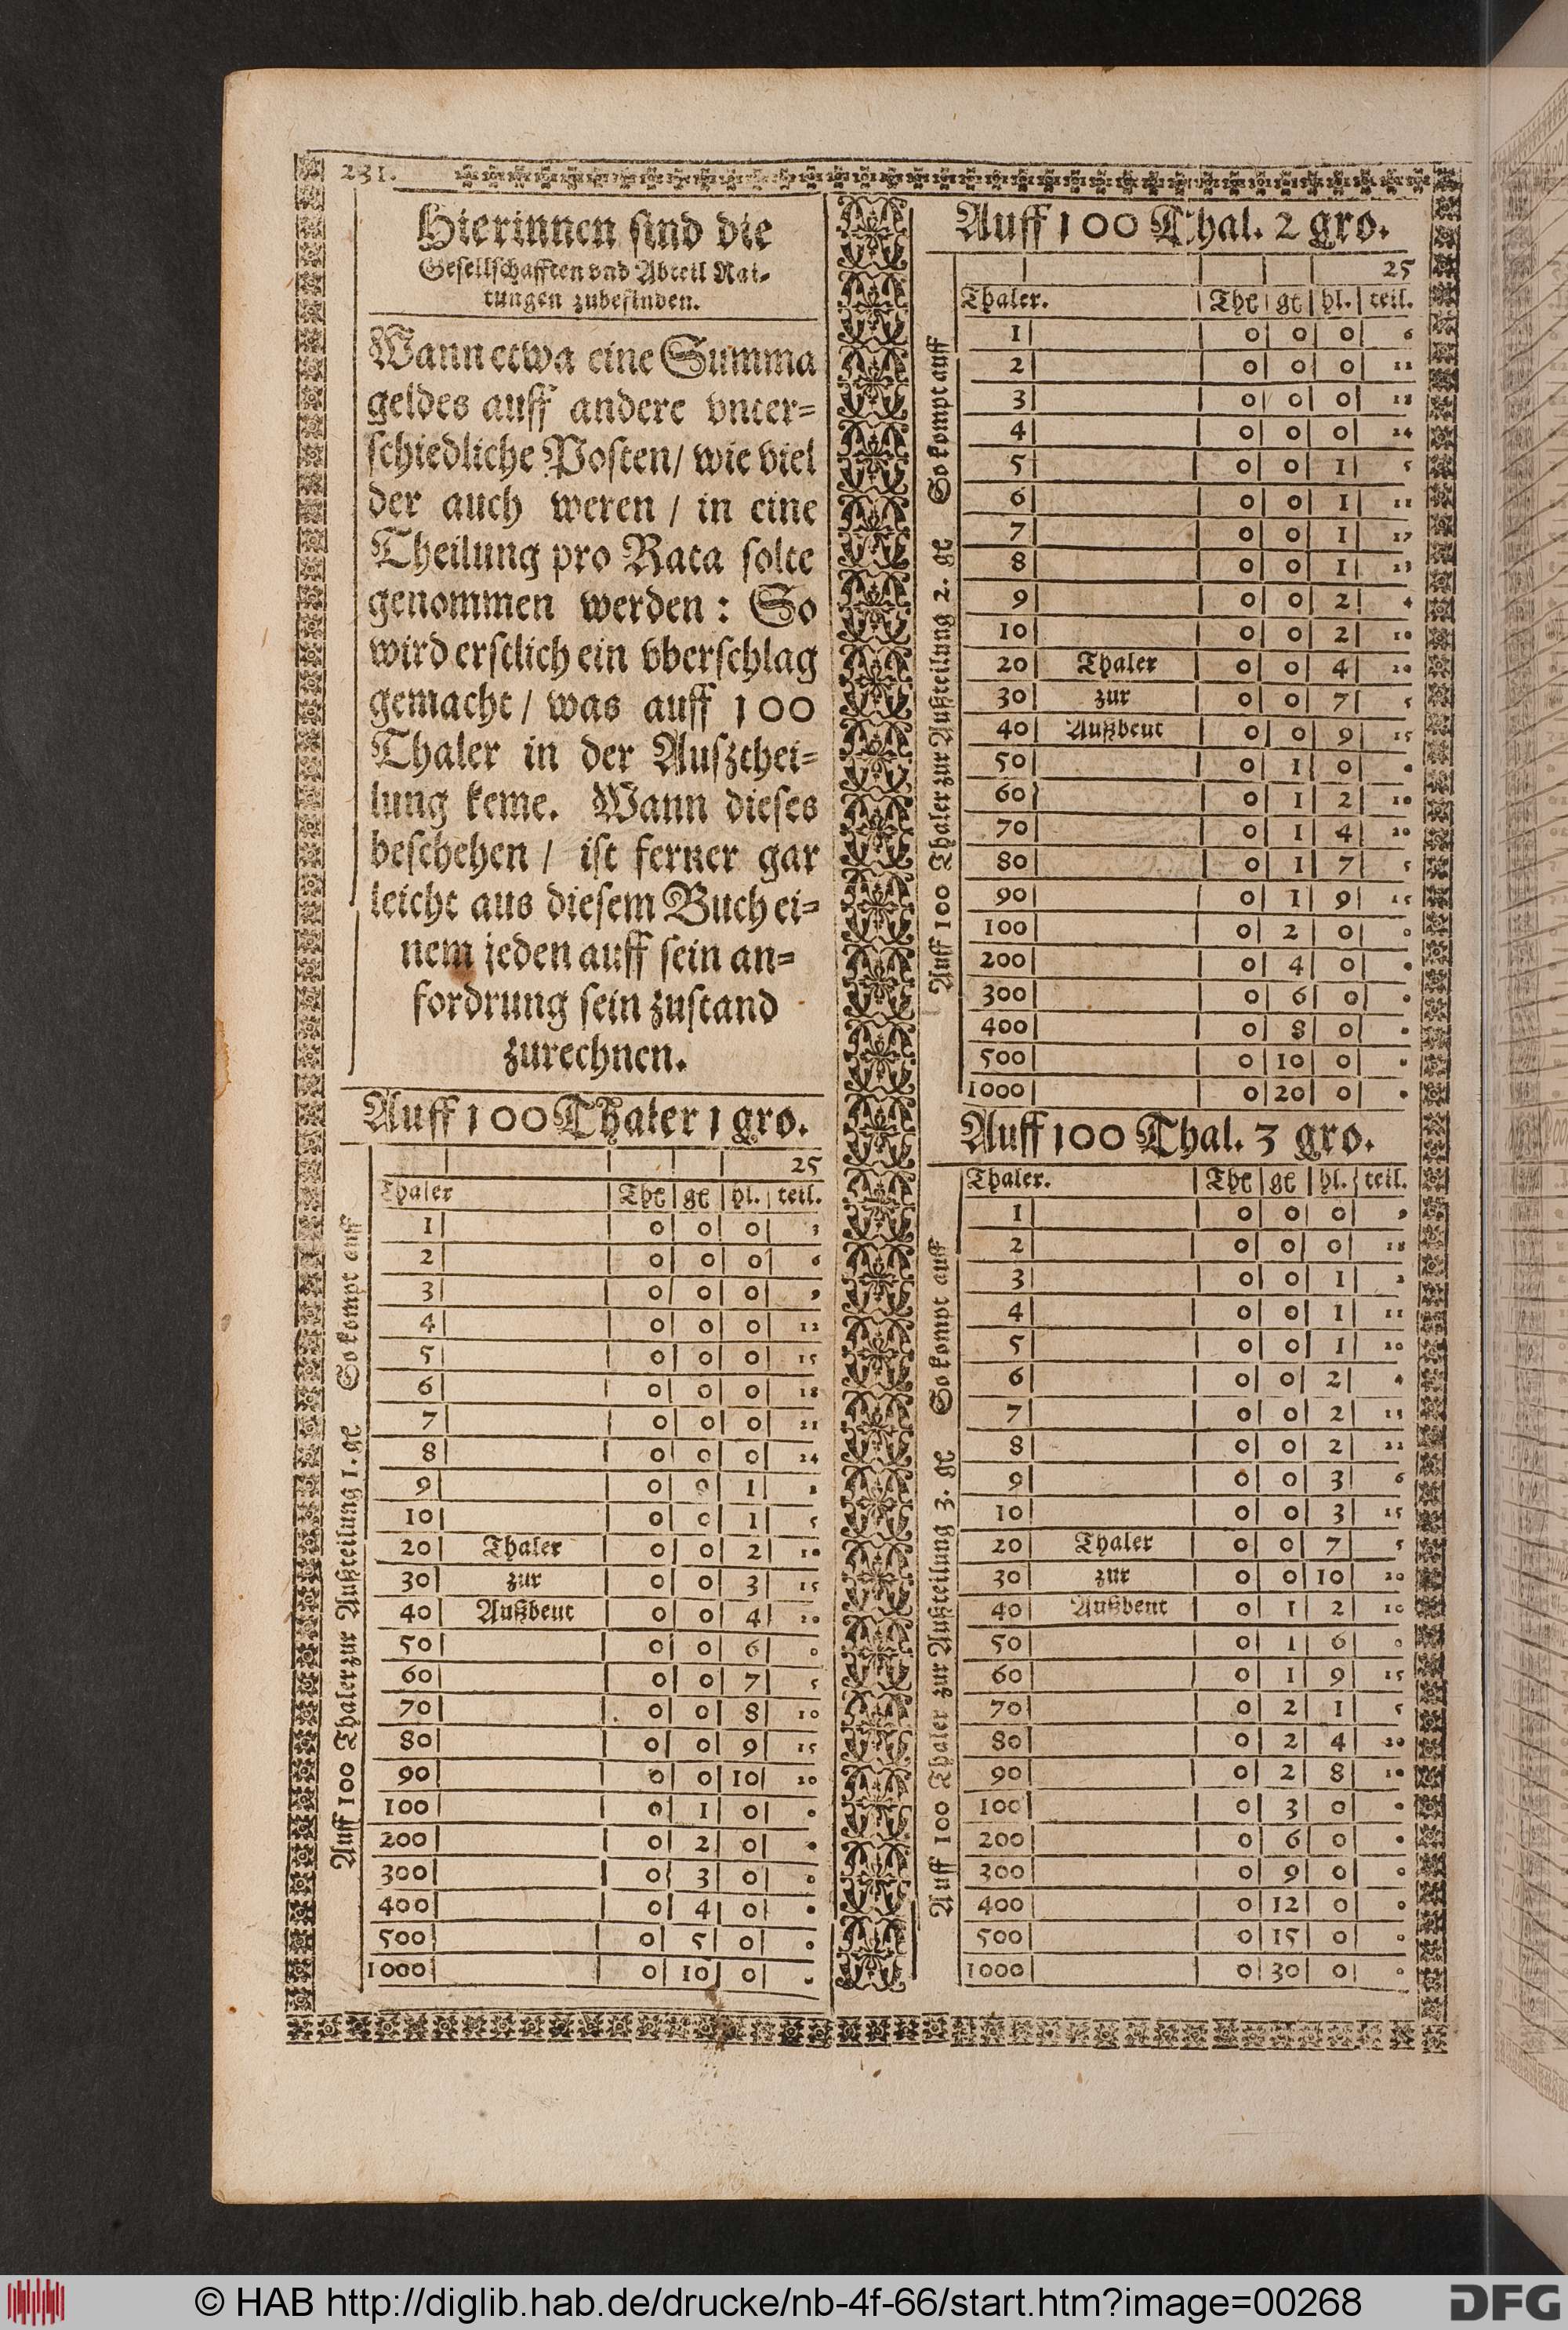 231.
Hierinnen sind die
Gesellschafften vnd Abteil Rai-
tungen zubefinden.
Wann etwa eine Summa
geldes auff andere vnter-
schiedliche Posten / wie viel
der auch weren / in eine
Theilung pro Rata solte
genommen werden: So
wird erstlich ein vberschlag
gemacht / was auff 100
Thaler in der Auszthei-
lung keme. Wann dieses
beschehen / ist ferner gar
leicht aus diesem Buch ei-
nem jeden auff sein an-
fordrung sein zustand
zurechnen.
Auff 100 Thaler 1 gro.
Auff 100 Thaler zur Außteilung 1. gl So kompt auff
25
Thaler Thl gl hl. teil.
1 0 0 0 3
2 0 0 0 6
3 0 0 0 9
4 0 0 0 12
5 0 0 0 15
6 0 0 0 18
7 0 0 0 21
8 0 0 0 24
9 0 0 1 2
10 0 0 1 5
20 Thaler 0 0 2 10
30 zur 0 0 3 15
40 Außbeut 0 0 4 20
50 0 0 6 0
60 0 0 7 5
70 0 0 8 10
80 0 0 9 15
90 0 0 10 20
100 0 1 0 0
200 0 2 0 0
300 0 3 0 0
400 0 4 0 0
500 0 5 0 0
1000 0 10 0 0
Auff 100 Thal. 2 gro.
Auff 100 Thaler zur Außteilung 2. gl So kompt auff
25
Thaler. Thl gl hl. teil.
1 0 0 0 6
2 0 0 0 12
3 0 0 0 18
4 0 0 0 24
5 0 0 1 5
6 0 0 1 11
7 0 0 1 17
8 0 0 1 23
9 0 0 2 4
10 0 0 2 10
20 Thaler 0 0 4 20
30 zur 0 0 7 5
40 Außbeut 0 0 9 15
50 0 1 0 0
60 0 1 2 10
70 0 1 4 20
80 0 1 7 5
90 0 1 9 15
100 0 2 0 0
200 0 4 0 0
300 0 6 0 0
400 0 8 0 0
500 0 10 0 0
1000 0 20 0 0
Auff 100 Thal. 3 gro.
Auff 100 Thaler zur Außteilung 3. gl So kompt auff
Thaler. Thl gl hl. teil.
1 0 0 0 9
2 0 0 0 18
3 0 0 1 2
4 0 0 1 11
5 0 0 1 20
6 0 0 2 4
7 0 0 2 13
8 0 0 2 22
9 0 0 3 6
10 0 0 3 15
20 Thaler 0 0 7 5
30 zur 0 0 10 20
40 Außbeut 0 1 2 10
50 0 1 6 0
60 0 1 9 15
70 0 2 1 5
80 0 2 4 20
90 0 2 8 10
100 0 3 0 0
200 0 6 0 0
300 0 9 0 0
400 0 12 0 0
500 0 15 0 0
1000 0 30 0 0
© HAB http://diglib.hab.de/drucke/nb-4f-66/start.htm?image=00268
DFG